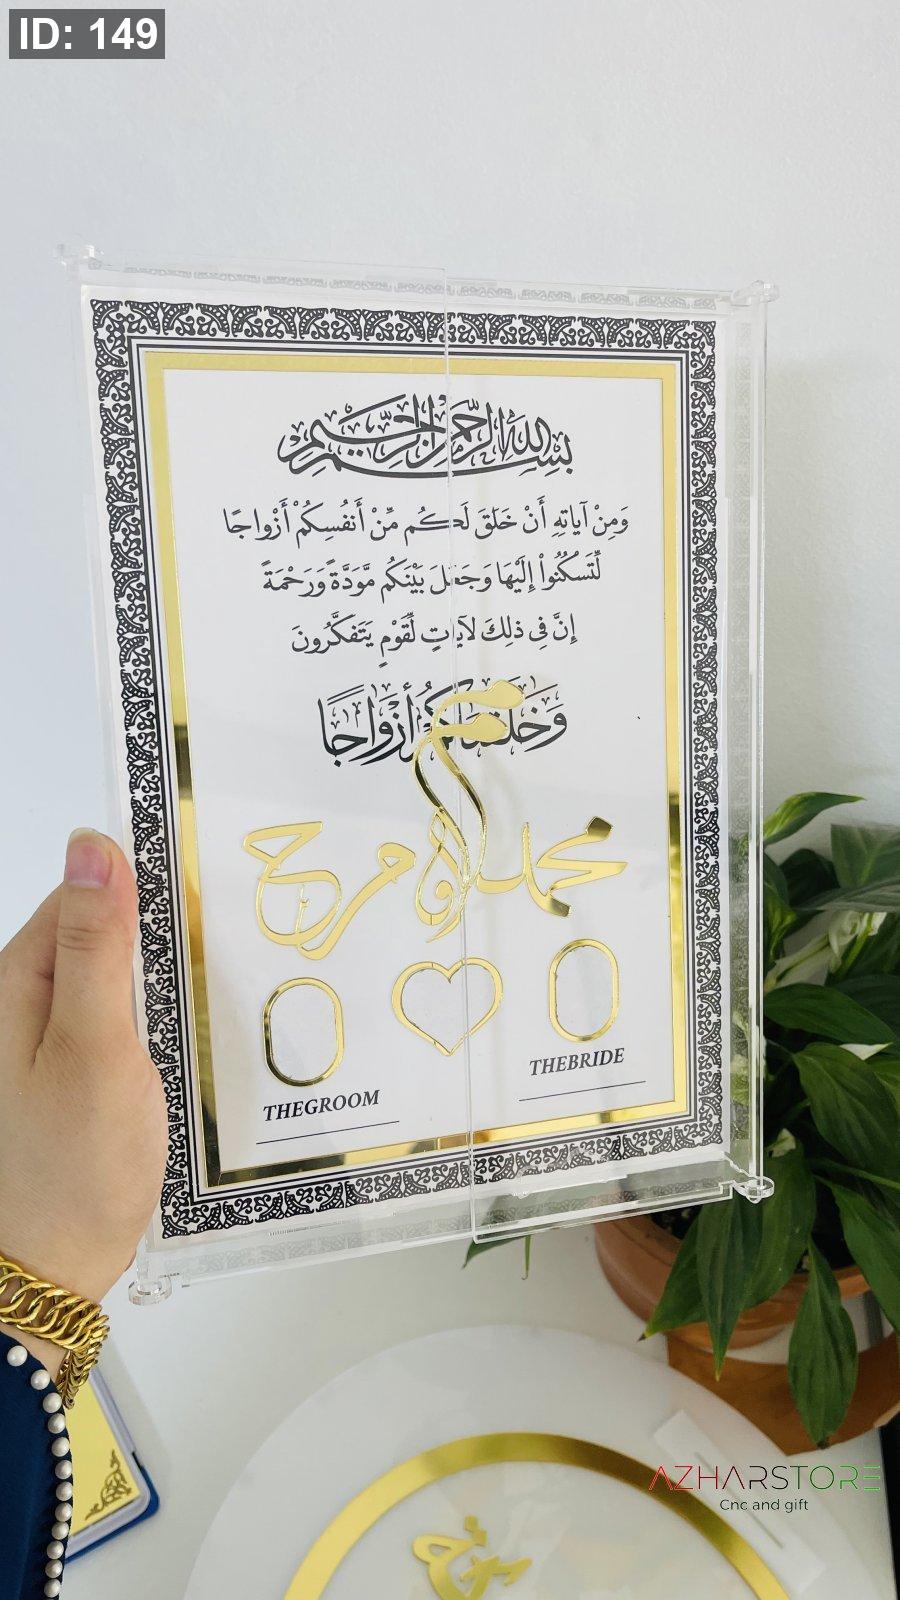 ID: 149
بسم الله الرحمن الرحيم
وَمِنْ آيَاتِهِ أَنْ خَلَقَ لَكُم مِّنْ أَنفُسِكُمْ أَزْوَاجًا
لِّتَسْكُنُوا إِلَيْهَا وَجَعَلَ بَيْنَكُم مَّوَدَّةً وَرَحْمَةً
إِنَّ فِي ذَلِكَ لَآيَاتٍ لِّقَوْمٍ يَتَفَكَّرُونَ
وَخَلَقْنَاكُمْ أَزْوَاجًا
محمد
THEGROOM
THEBRIDE
AZHARSTORE
Cnc and gift